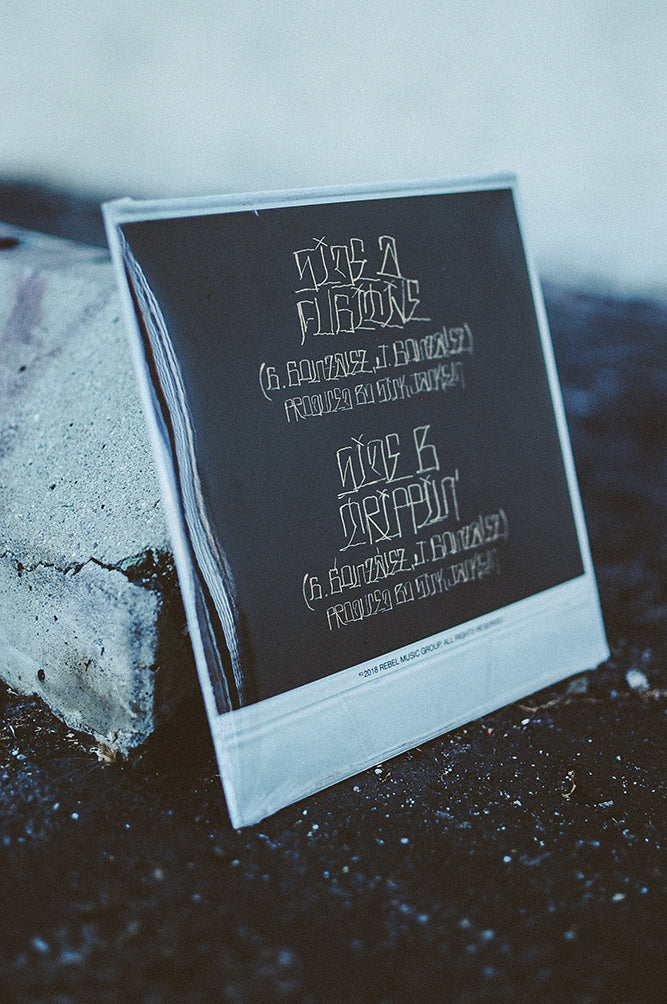 SIDE A
(G. GONZALEZ, J. GONZALEZ)
PRODUCED BY SICK JACKEN
SIDE B
DRIPPIN'
(G. GONZALEZ, J. GONZALEZ)
PRODUCED BY SICK JACKEN
©2018 REBEL MUSIC GROUP. ALL RIGHTS RESERVED.